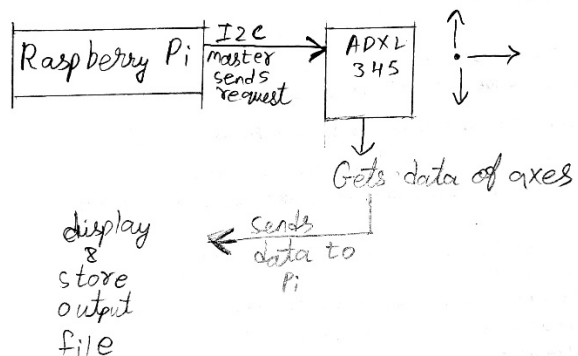 Raspberry Pi
I2C
master
sends
request
ADXL
345
Gets data of axes
sends
data to
Pi
display
&
store
output
file